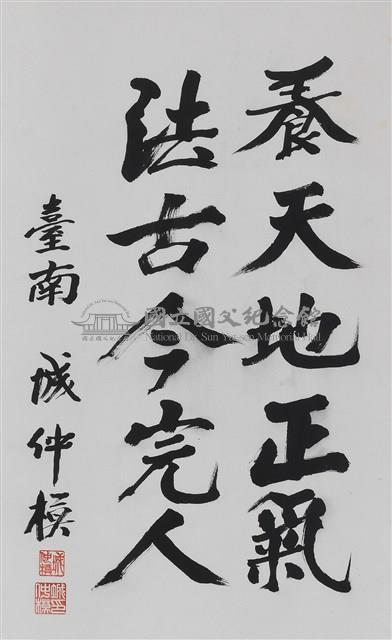 養天地正氣
法古今完人
臺南 城仲模
國立國父紀念館
National Dr. Sun Yat-sen Memorial Hall